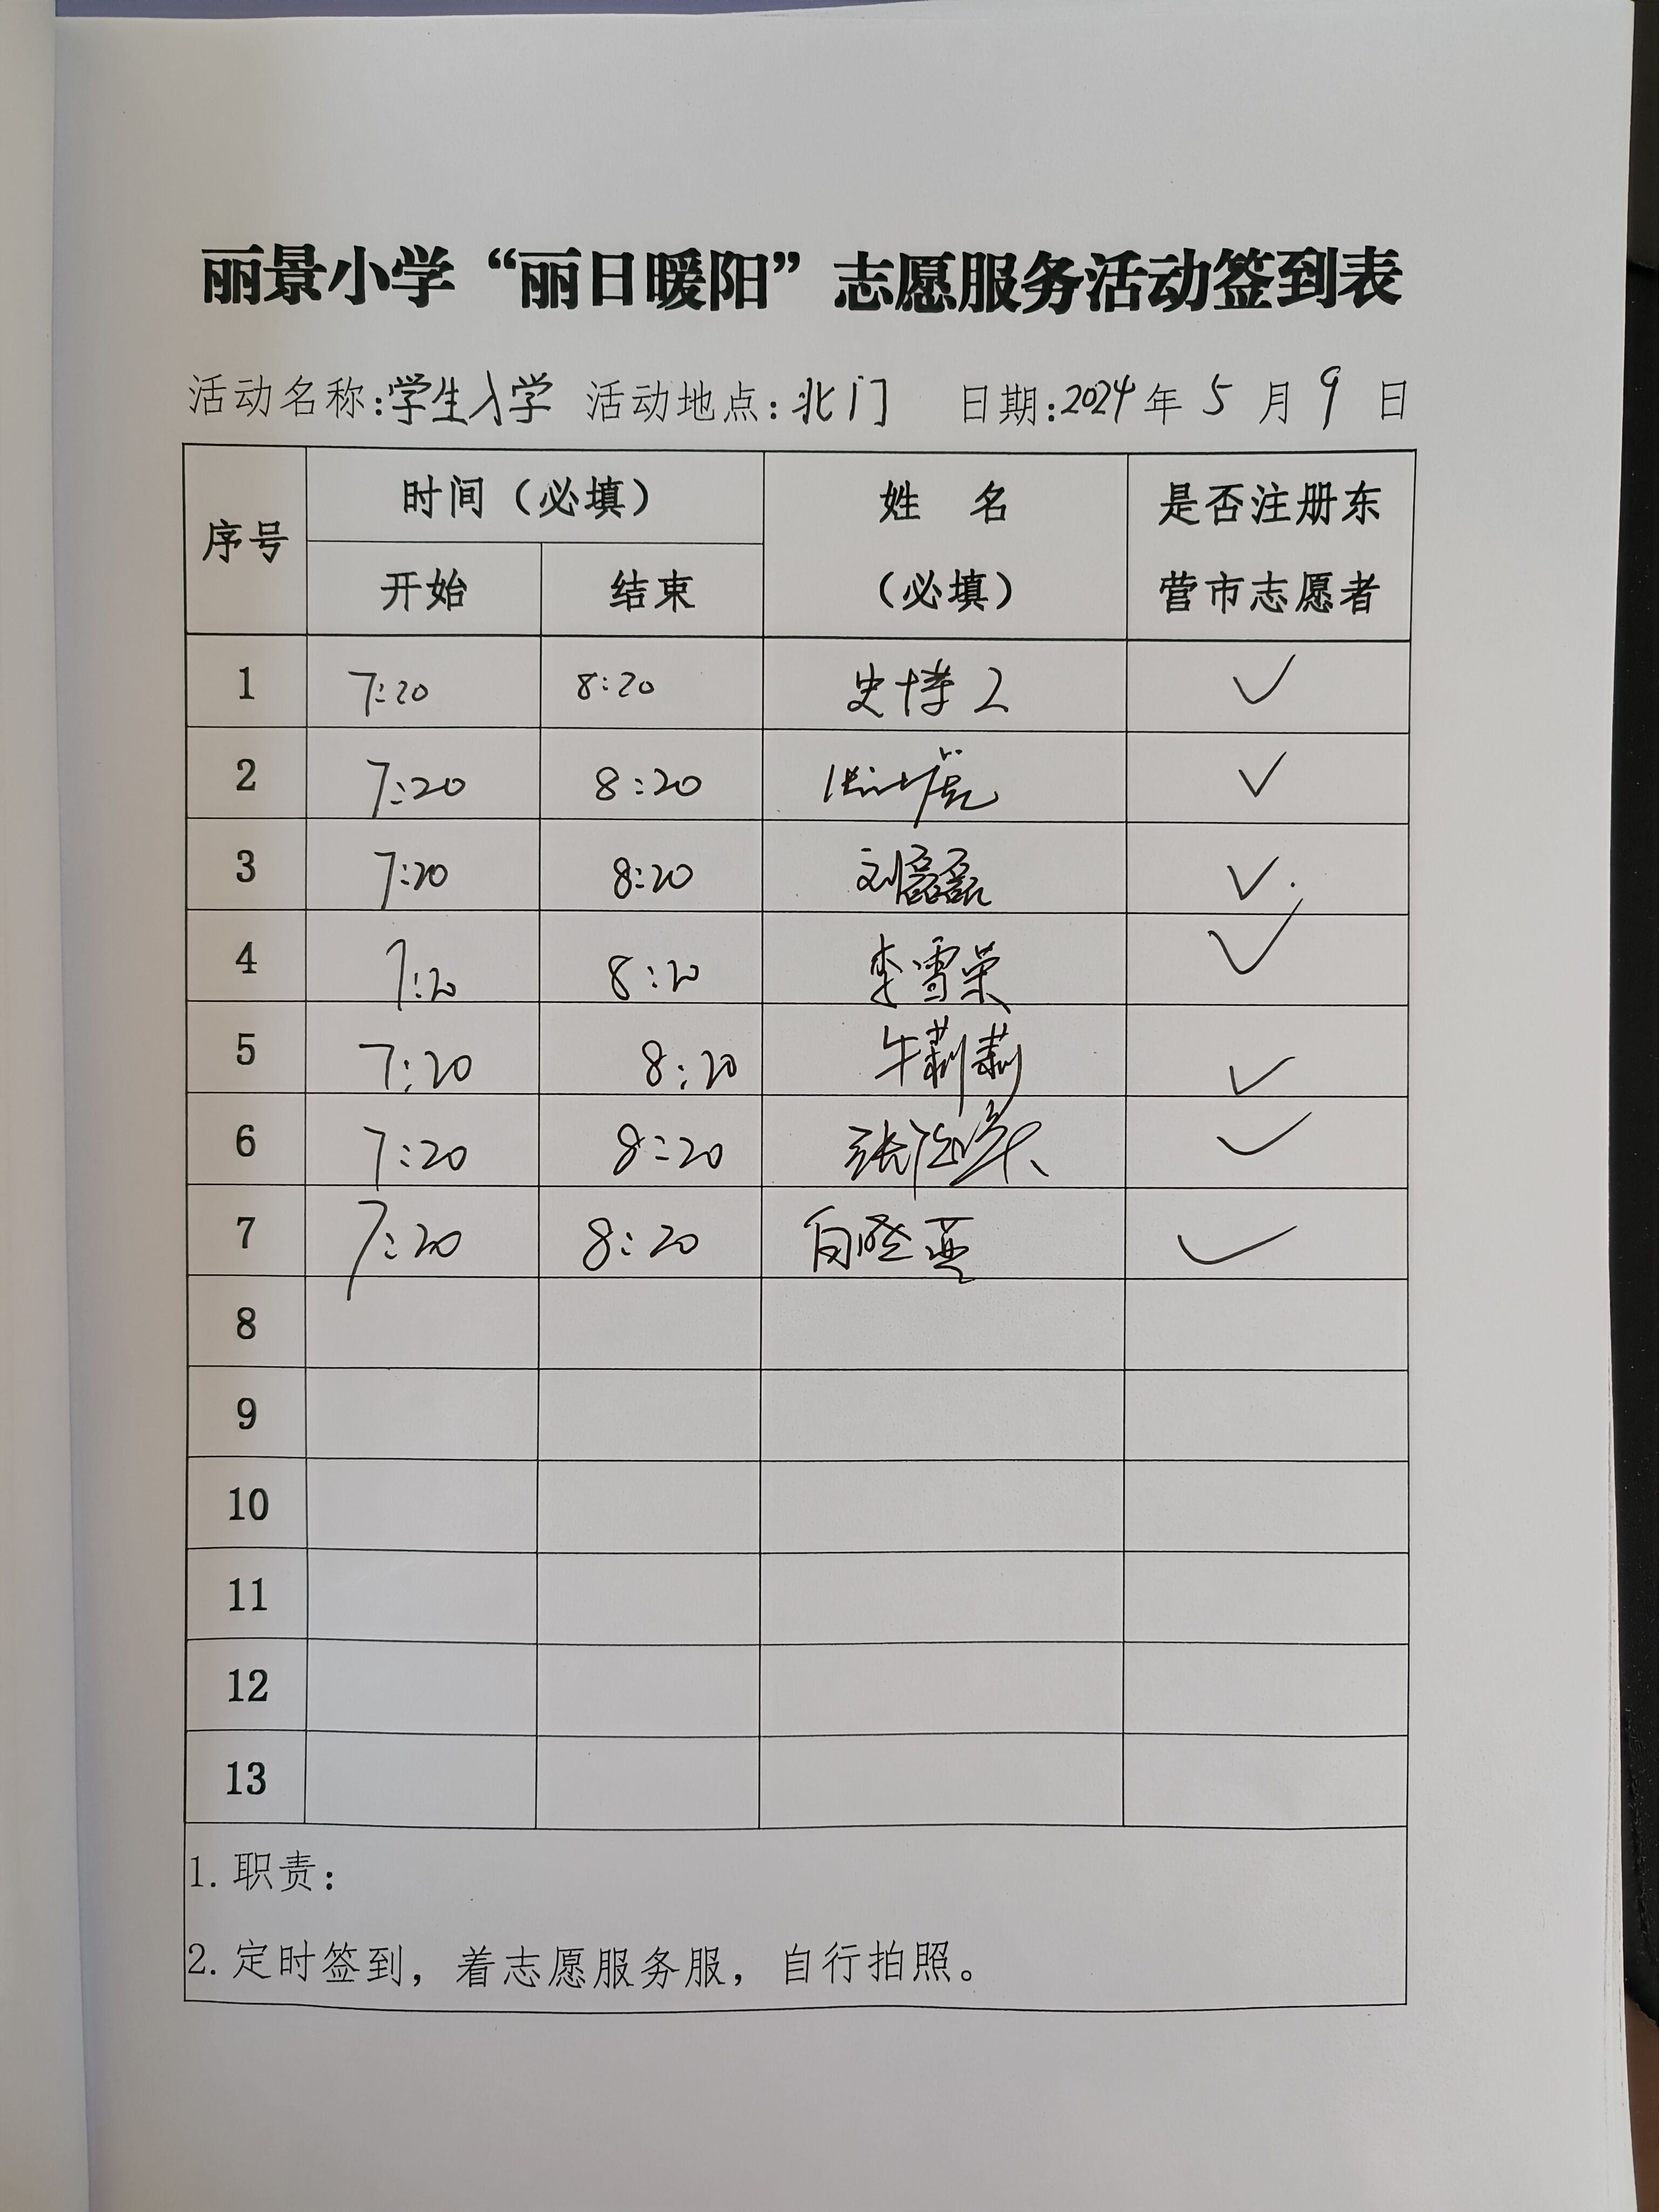 丽景小学“丽日暖阳”志愿服务活动签到表
活动名称:学生入学 活动地点:北门 日期:2024年5月9日
序号 时间（必填） 姓 名 是否注册东
开始 结束 （必填） 营市志愿者
1 7:20 8:20 史博工 ✓
2 7:20 8:20 ✓
3 7:20 8:20 刘磊磊 ✓.
4 7:20 8:20 李雪荣 ✓
5 7:20 8:20 牛莉莉 ✓
6 7:20 8:20 张 ✓
7 7:20 8:20 ✓
8
9
10
11
12
13
1.职责：
2.定时签到，着志愿服务服，自行拍照。